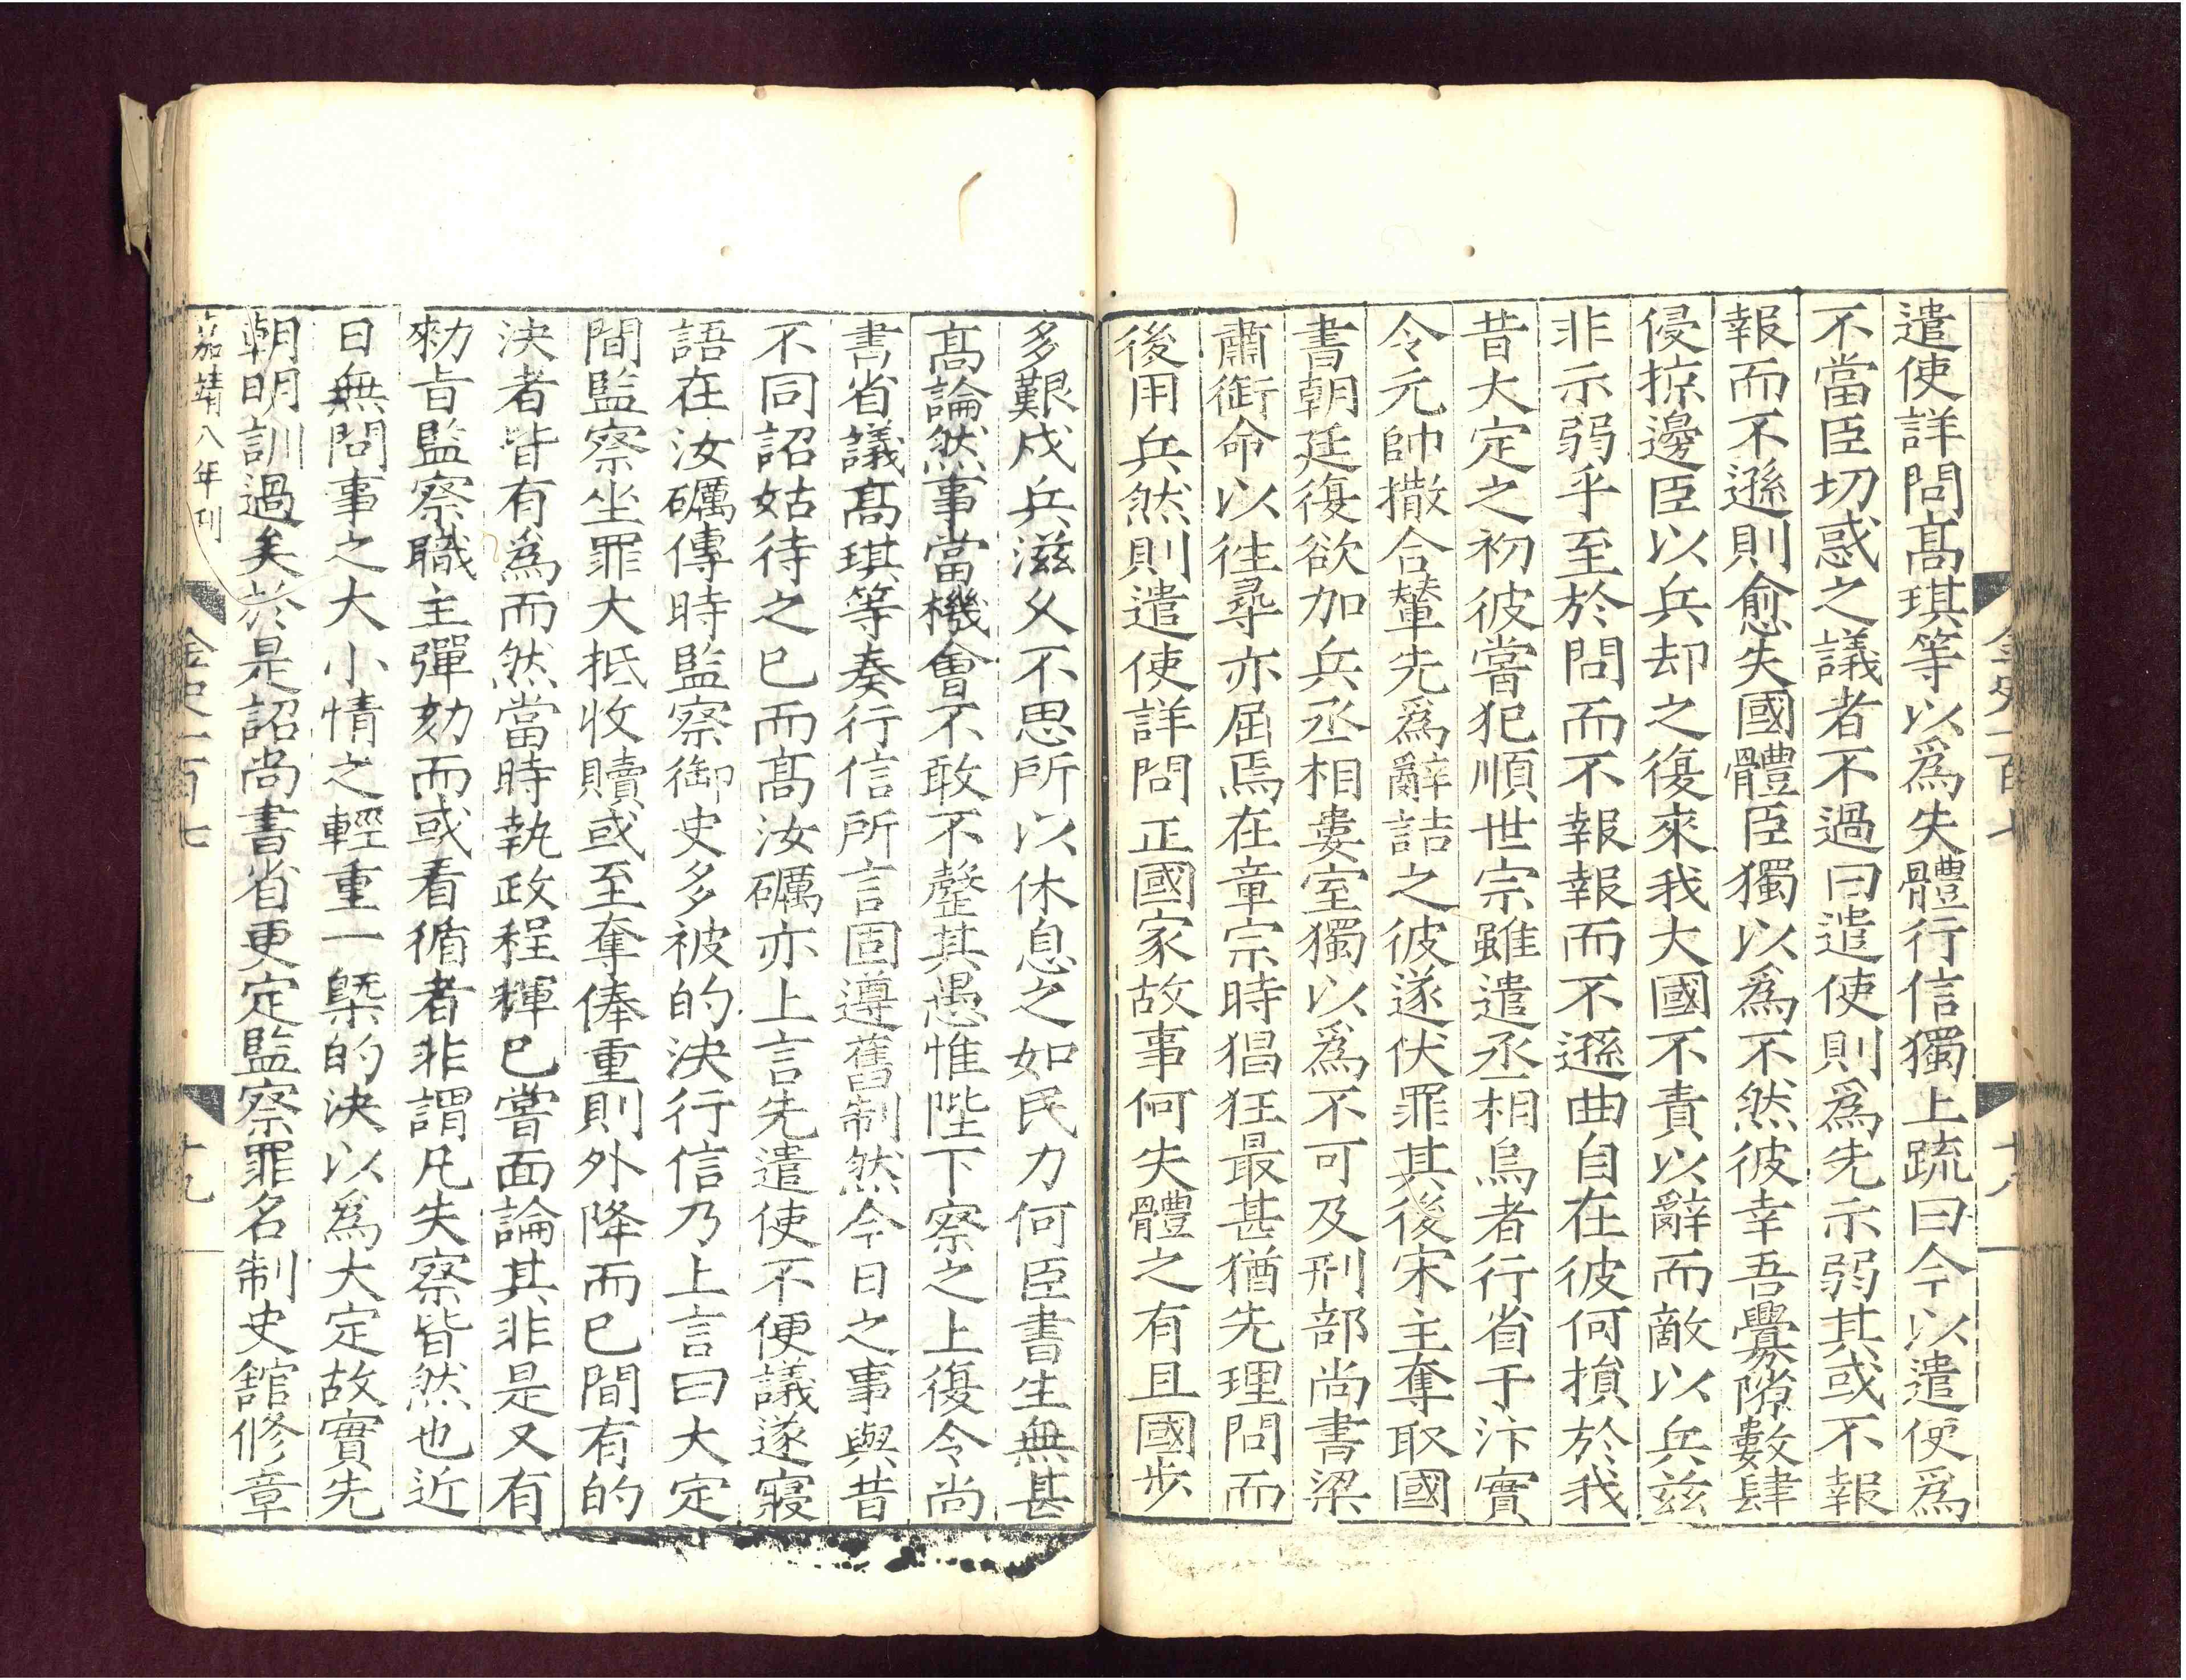 遣使詳問髙琪等以爲失體行信獨上䟽曰今以遣使爲
不當臣切惑之議者不過曰遣使則爲先示弱其或不報
報而不遜則愈失國體臣獨以爲不然彼幸吾釁隙數肆
侵掠邊臣以兵却之復來我大國不責以辭而敵以兵兹
非示弱乎至於問而不報報而不遜曲自在彼何損於我
昔大定之初彼嘗犯順世宗雖遣丞相烏者行省于汴實
令元帥撒合輦先爲辭詰之彼遂伏罪其後宋主奪取國
書朝廷復欲加兵丞相婁室獨以爲不可及刑部尚書梁
肅銜命以徃尋亦屈焉在章宗時猖狂最甚猶先理問而
後用兵然則遣使詳問正國家故事何失體之有且國步
多艱戍兵滋乆不思所以休息之如民力何臣書生無甚
髙論然事當機會不敢不罄其愚惟陛下察之上復令尚
書省議髙琪等奏行信所言固遵舊制然今日之事與昔
不同詔姑待之已而髙汝礪亦上言先遣使不便議遂寢
語在汝礪傳時監察御史多被的决行信乃上言曰大定
間監察坐罪大抵收贖或至奪俸重則外降而已間有的
决者皆有爲而然當時執政程輝已嘗面論其非是又有
勑旨監察職主彈劾而或看循者非謂凡失察皆然也近
日無問事之大小情之輕重一槩的决以爲大定故實先
朝明訓過矣於是詔尚書省更定監察罪名制史舘修章
嘉靖八年刊
金史一百七
十九
金史一百七
十八